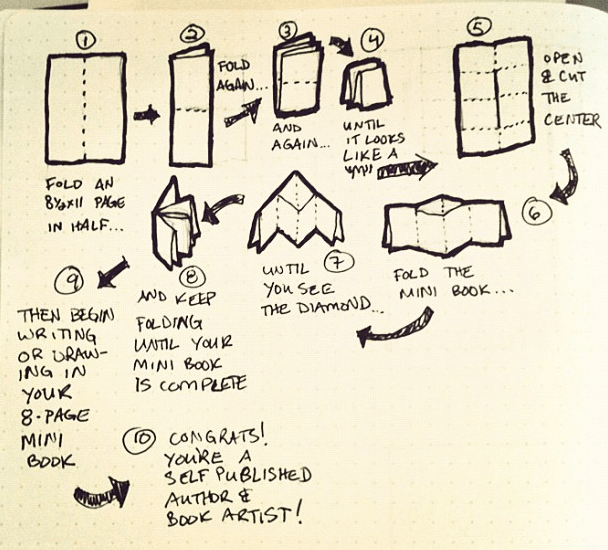 1
FOLD AN
8½x11 PAGE
IN HALF...
2
FOLD
AGAIN...
3
AND
AGAIN...
4
UNTIL
IT LOOKS
LIKE A
"M"
5
OPEN
& CUT
THE
CENTER
6
FOLD THE
MINI BOOK...
7
UNTIL
YOU SEE
THE DIAMOND...
8
AND KEEP
FOLDING
UNTIL YOUR
MINI BOOK
IS COMPLETE
9
THEN BEGIN
WRITING
OR DRAW-
ING IN
YOUR
8-PAGE
MINI
BOOK
10 CONGRATS!
YOU'RE A
SELF PUBLISHED
AUTHOR &
BOOK ARTIST!